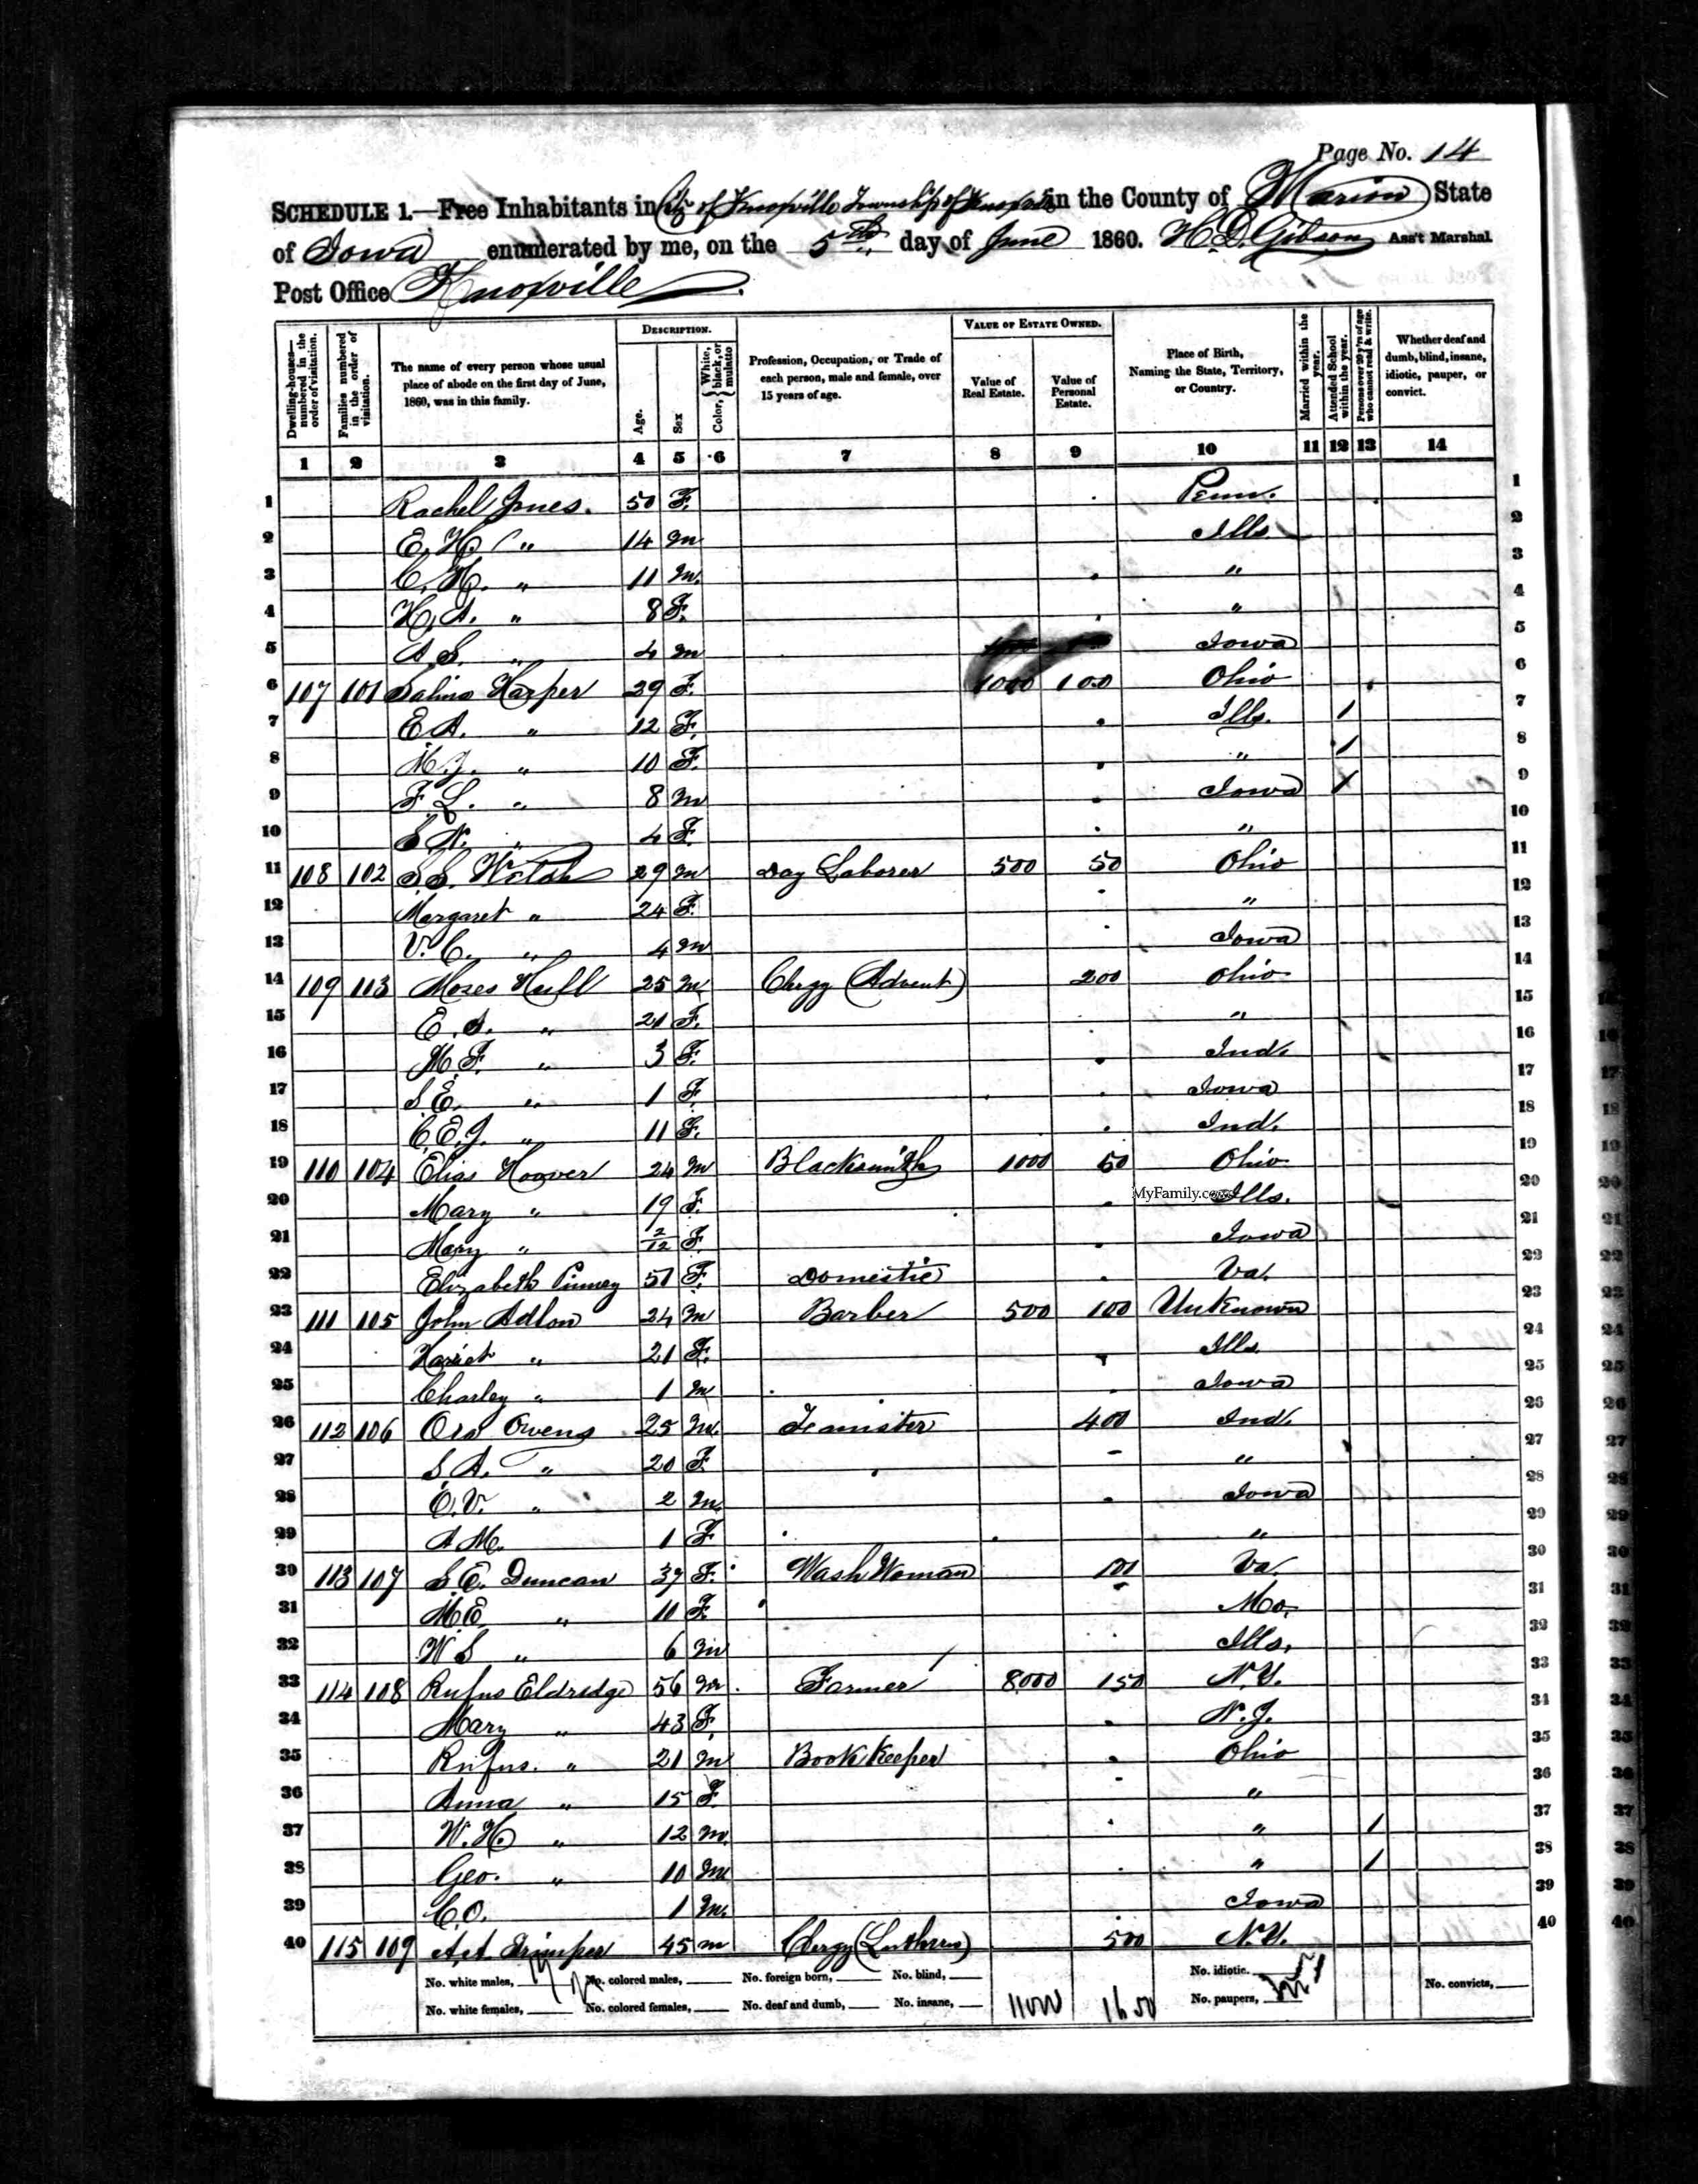 Page No. 14
SCHEDULE 1.—Free Inhabitants in City of Knoxville Township of Knoxville in the County of Marion State
of Iowa enumerated by me, on the 5th. day of June 1860. H. D. Gibson Ass't Marshal
Post Office Knoxville.
Dwelling-houses—numbered in the order of visitation.
Families numbered in the order of visitation.
The name of every person whose usual place of abode on the first day of June, 1860, was in this family.
DESCRIPTION.
Age.
Sex
Color, White, black, or mulatto
Profession, Occupation, or Trade of each person, male and female, over 15 years of age.
VALUE OF ESTATE OWNED.
Value of Real Estate.
Value of Personal Estate.
Place of Birth, Naming the State, Territory, or Country.
Married within the year.
Attended School within the year.
Persons over 20 y'rs of age who cannot read & write.
Whether deaf and dumb, blind, insane, idiotic, pauper, or convict.
1 2 3 4 5 6 7 8 9 10 11 12 13 14
1 Rachel Jones. 50 F. Penn. 1
2 E. H. " 14 m Ills 2
3 C. H. " 11 m. " 3
4 H. A. " 8 F. " 4
5 A. S. " 4 m Iowa 5
6 107 101 Salina Harper 29 F. 1000 100 Ohio 6
7 E A. " 12 F. Ills. 1 7
8 M. J. " 10 F. " 1 8
9 F L. " 8 m Iowa 1 9
10 S N. " 4 F. " 10
11 108 102 S. S. 29 m Day Laborer 500 50 Ohio 11
12 Margaret " 24 F. " 12
13 V. C. " 4 m Iowa 13
14 109 113 Moses Hull 25 m Clergy (Advent) 200 Ohio 14
15 E. S. " 21 F. " 15
16 M. F. " 3 F. Ind. 16
17 S E. " 1 F. Iowa 17
18 C. E. J. " 11 F. Ind. 18
19 110 104 Elias Hoover 24 m Blacksmith 1000 50 Ohio 19
MyFamily.com
20 Mary " 19 F. Ills. 20
21 Mary " 2/12 F. Iowa 21
22 Elizabeth Pinney 51 F. Domestic Va. 22
23 111 105 John Adlon 24 m Barber 500 100 Unknown 23
24 Hariet " 21 F. Ills. 24
25 Charley " 1 m Iowa 25
26 112 106 Ora Owens 25 m. Teamster 400 Ind. 26
27 S. A. " 20 F. " 27
28 O. V. " 2 m. Iowa 28
29 A M. 1 F. " 29
30 113 107 S. E. Duncan 37 F. Wash Woman 100 Va. 30
31 M. E. " 11 F. Mo. 31
32 W S " 6 m Ills. 32
33 114 108 Rufus Eldridge 56 m. Farmer 8000 150 N. Y. 33
34 Mary " 43 F. N. J. 34
35 Rufus. " 21 m Book Keeper Ohio 35
36 Anna " 15 F. " 36
37 W. H. " 12 m. " 1 37
38 Geo. " 10 m " 1 38
39 C. O. 1 m. Iowa 39
40 115 109 A. A. Trimper 45 m Clergy (Luthren) 500 N. Y. 40
No. white males, No. colored males, No. foreign born, No. blind, No. idiotic. No. convicts,
No. white females, No. colored females, No. deaf and dumb, No. insane, 11000 1650 No. paupers,